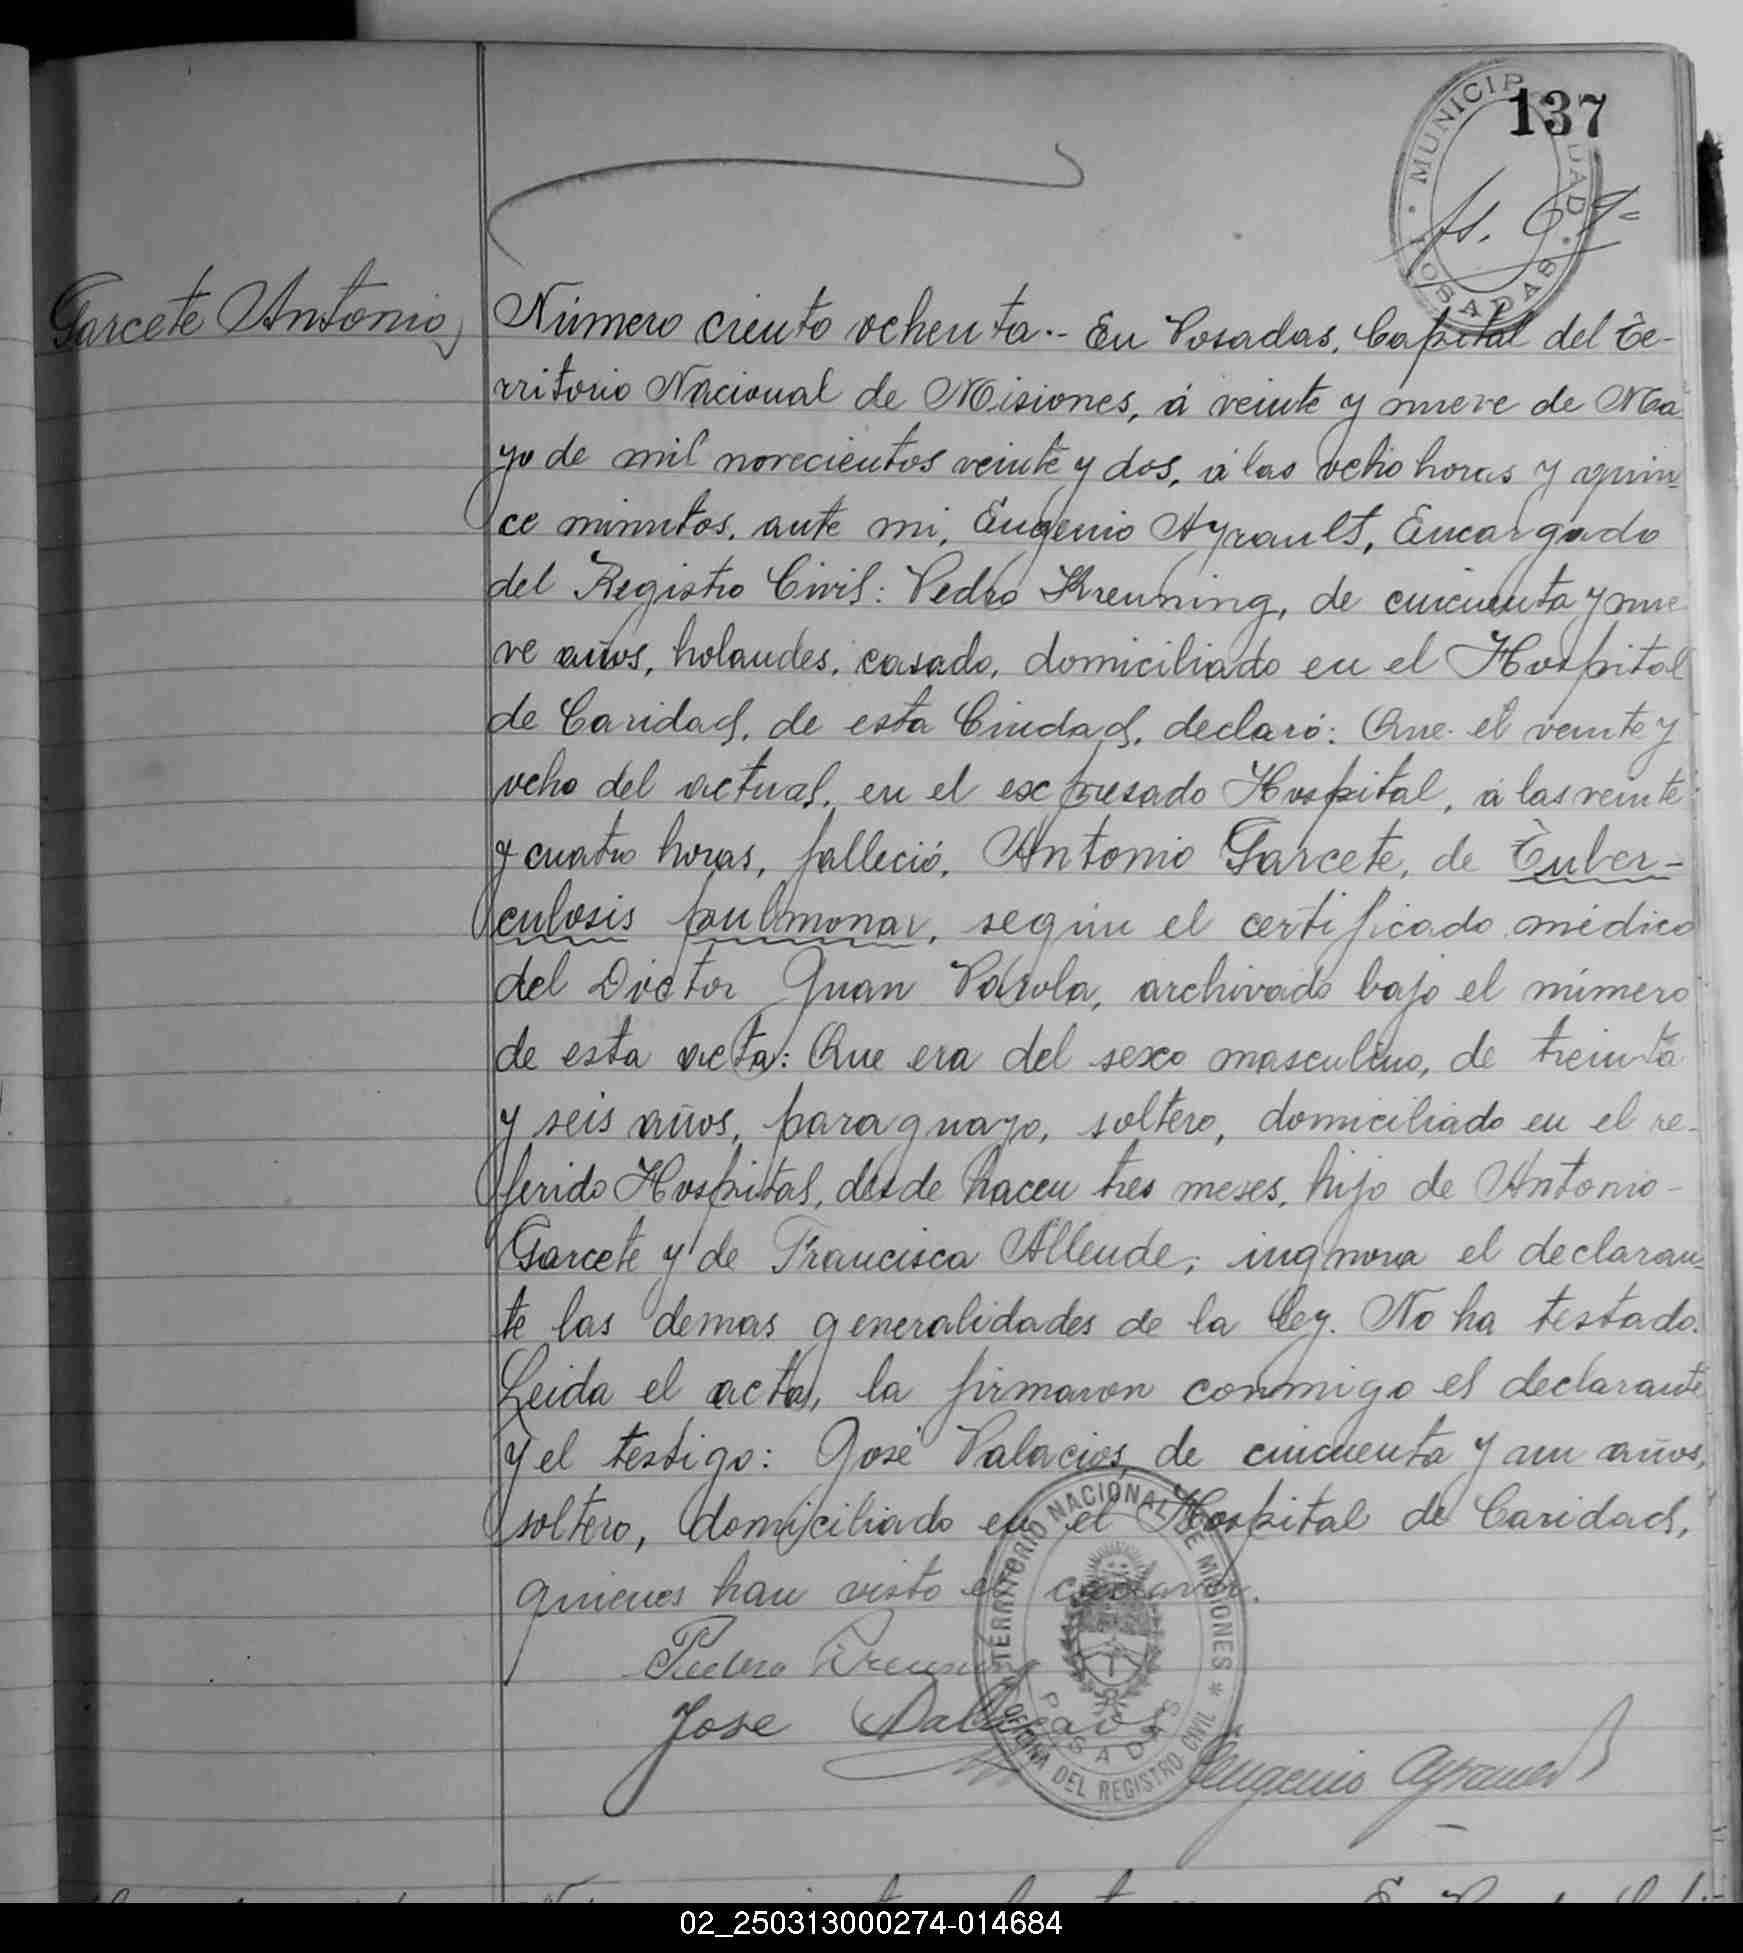 137
MUNICIPALIDAD
POSADAS
Garcete Antonio
Número ciento ochenta.- En Posadas, Capital del Te-
rritorio Nacional de Misiones, á veinte y nueve de Ma
yo de mil novecientos veinte y dos, á las ocho horas y quin-
ce minutos, ante mi, Eugenio Ayrault, Encargado
del Registro Civil: Pedro Kreuning, de cincuenta y nue
ve años, holandes, casado, domiciliado en el Hospital
de Caridad, de esta Ciudad, declaró: Que el veinte y
ocho del actual, en el expresado Hospital, á las veinte
y cuatro horas, falleció, Antonio Garcete, de Tuber-
culosis pulmonar, según el certificado médico
del Doctor Juan Párola, archivado bajo el número
de esta acta: Que era del sexo masculino, de treinta
y seis años, paraguayo, soltero, domiciliado en el re-
ferido Hospital, desde hacen tres meses, hijo de Antonio-
Garcete y de Francisca Allende; ingnora el declaran-
te las demas generalidades de la ley. No ha testado.
Leida el acta, la firmaron conmigo el declarante
y el testigo: José Palacios, de cincuenta y un años,
soltero, domiciliado en el Hospital de Caridad,
quienes han visto el cadaver.
Pedro Kreuning
Jose Palacios
Eugenio Ayrault
TERRITORIO NACIONAL DE MISIONES
POSADAS
OFICINA DEL REGISTRO CIVIL
02_250313000274-014684